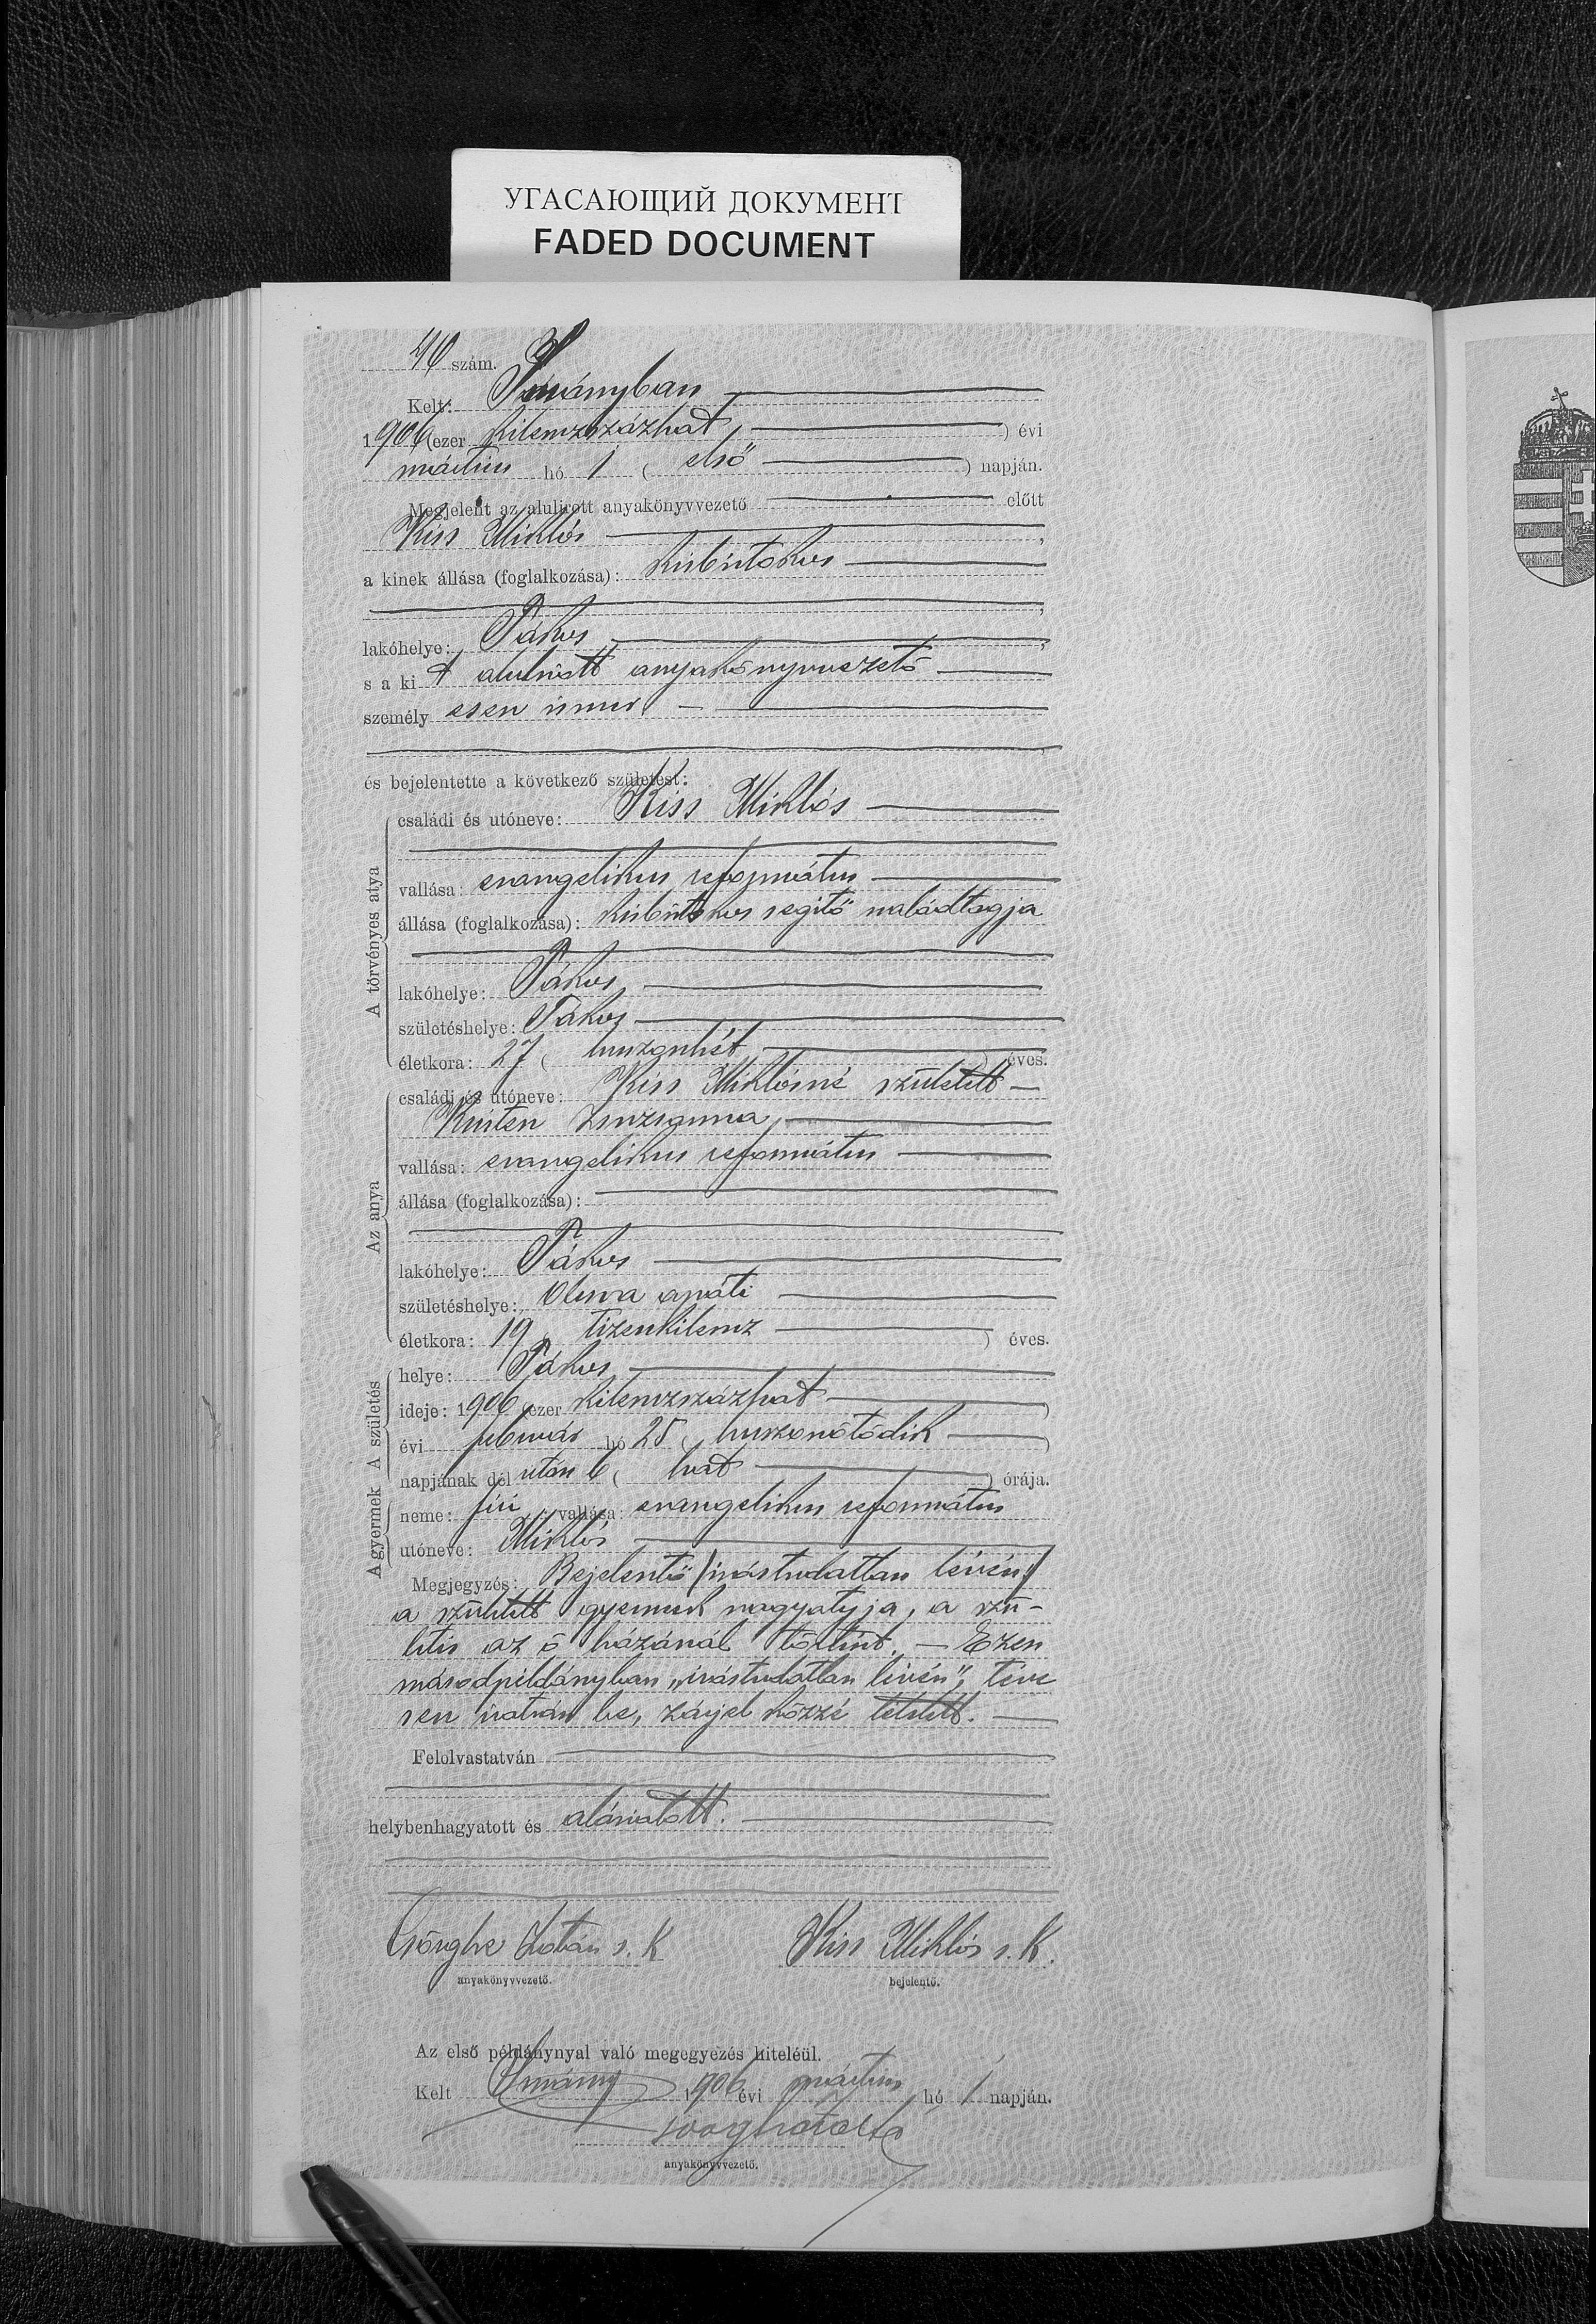 УГАСАЮЩИЙ ДОКУМЕНТ
FADED DOCUMENT
40 szám.
Kelt:
1906 (ezer kilenczszázhat) évi
márczius hó 1 (első) napján.
Megjelent az alulirott anyakönyvvezető előtt
Kiss Miklós,
a kinek állása (foglalkozása): kisbirtokos
lakóhelye: Pákos
s a ki t alulirott anyakönyvvezető
személyesen ismer
és bejelentette a következő születést:
A törvényes atya
családi és utóneve: Kiss Miklós
vallása: evangelikus református
állása (foglalkozása): kisbirtokos segitő családtagja
lakóhelye: Pákos
születéshelye: Pákos
életkora: 27 (huszonhét) éves.
Az anya
családi és utóneve: Kiss Miklósné született
Zsuzsanna
vallása: evangelikus református
állása (foglalkozása):
lakóhelye: Pákos
születéshelye: apáti
életkora: 19 (tizenkilencz) éves.
A születés
helye: Pákos
ideje: 1906 (ezer kilenczszázhat)
évi február hó 25 (huszonötödik)
napjának dél után 6 (hat) órája.
A gyermek
neme: fiú vallása: evangelikus református
utóneve: Miklós
Megjegyzés: Bejelentő (irástudatlan lévén)
a született gyermek nagyatyja, a szü-
letés az ő házánál történt. — Ezen
másodpéldányban „irástudatlan lévén", téve
sen iratván be, zárjel közzé tétetett.
Felolvastatván
helybenhagyatott és aláiratott.
Zoltán s. k.
Kiss Miklós s. k.
anyakönyvvezető.
bejelentő.
Az első példánynyal való megegyezés hiteléül.
Kelt 1906 évi márczius hó 1 napján.
anyakönyvvezető.